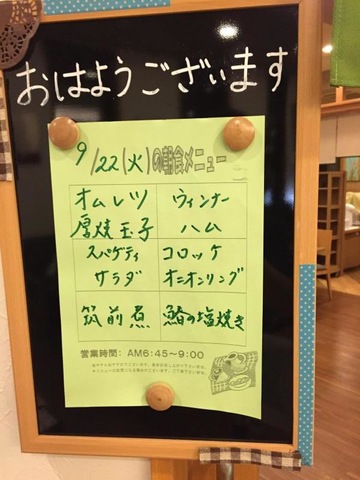 おはようございます
9/22(火)の朝食メニュー
オムレツ ウィンナー
厚焼玉子 ハム
スパゲティ コロッケ
サラダ オニオンリング
筑前煮 鰆の塩焼き
営業時間: AM6:45～9:00